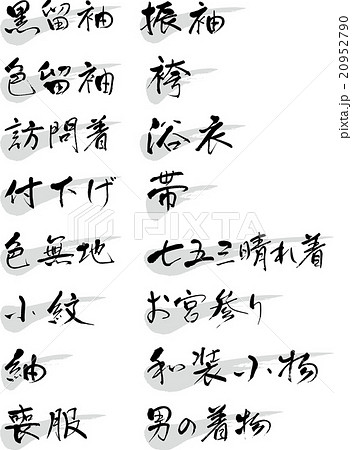 黒留袖 振袖
色留袖 袴
訪問着 浴衣
付下げ 帯
色無地 七五三晴れ着
小紋 お宮参り
紬 和装小物
喪服 男の着物
PIXTA
pixta.jp - 20952790